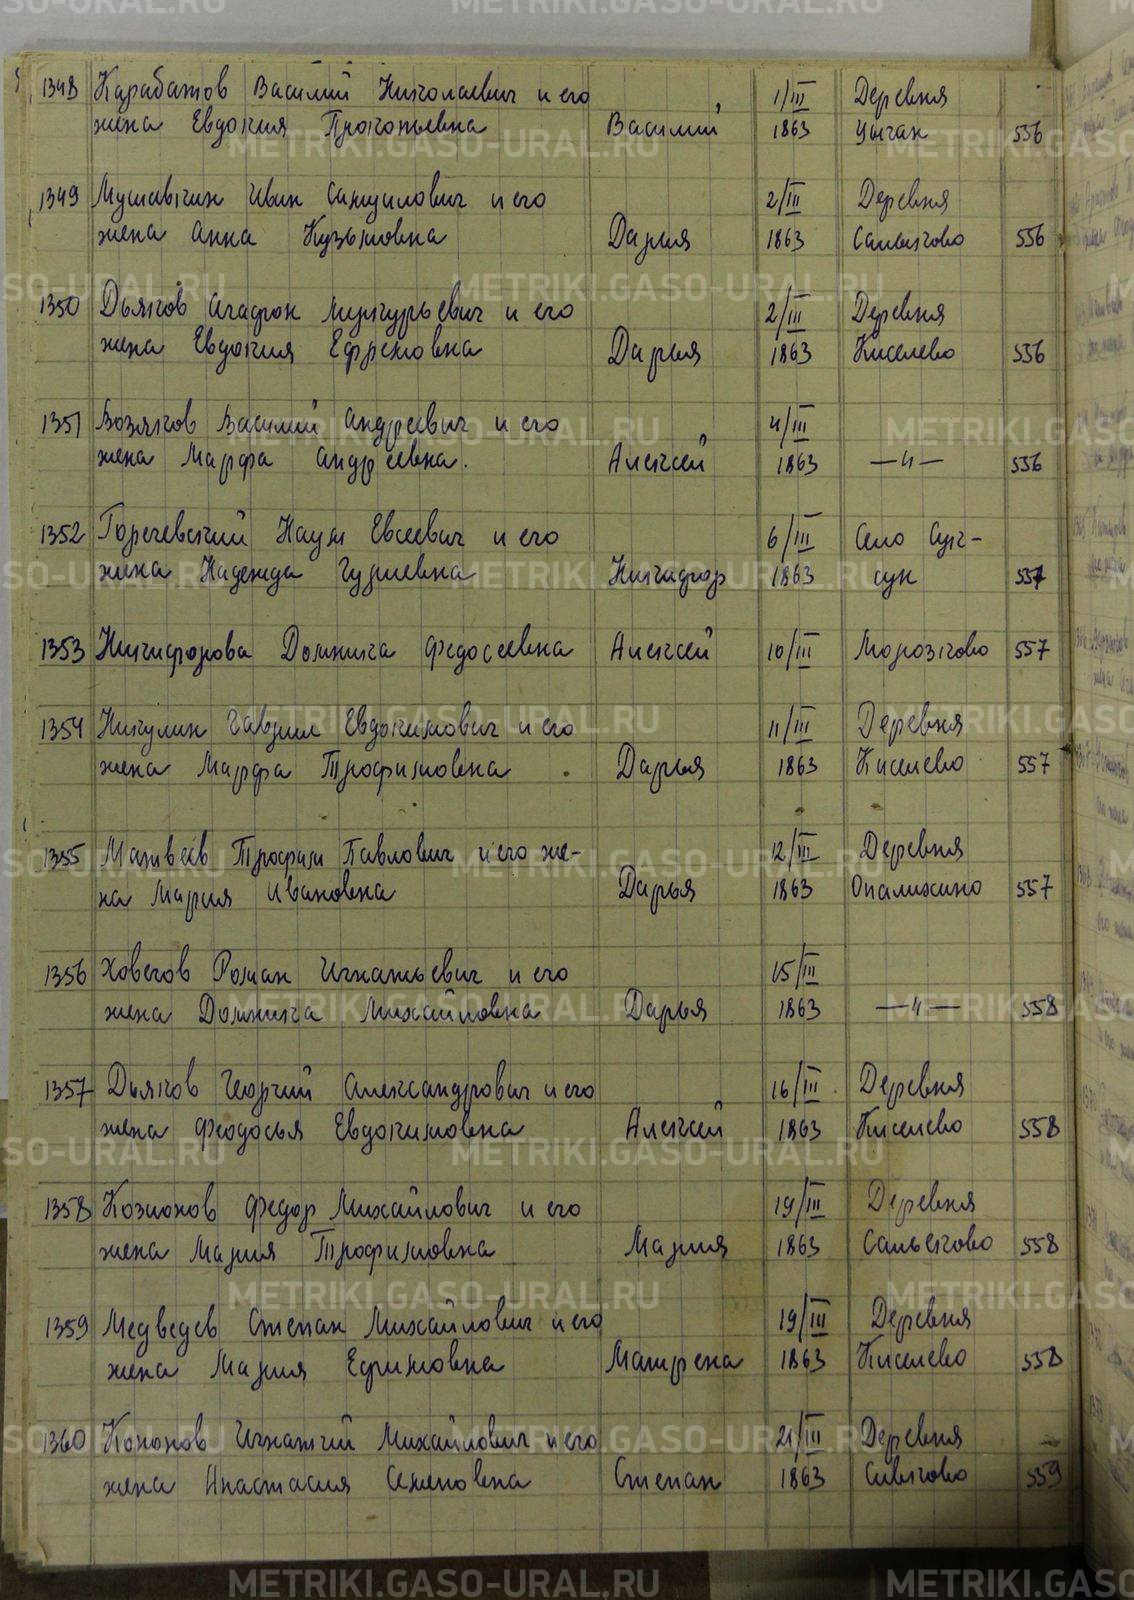 1348 Карабатов Василий Николаевич и его 1/III Деревня
жена Евдокия Прокопьевна Василий 1863 Цыган 556
1349 Иван Самуилович и его 2/III Деревня
жена Анна Кузьмовна Дарья 1863 556
1350 Дьяков Агафон и его 2/III Деревня
жена Евдокия Ефремовна Дарья 1863 Киселево 556
1351 Возяков Василий Андреевич и его 4/III
жена Марфа Андреевна. Алексей 1863 —"— 556
1352 Наум Евсеевич и его 6/III Село Сук-
жена Надежда Гурьевна Никанор 1863 сун 557
1353 Никифорова Домника Федосеевна Алексей 10/III Морозково 557
1354 Никулин Гаврил Евдокимович и его 11/III Деревня
жена Марфа Трофимовна Дарья 1863 Киселево 557
1355 Матвеев Трофим Павлович и его же- 12/III Деревня
на Мария Ивановна Дарья 1863 Опалихино 557
1356 Роман Игнатьевич и его 15/III
жена Домника Михайловна Дарья 1863 —"— 558
1357 Дьяков Георгий Александрович и его 16/III Деревня
жена Феодосья Евдокимовна Алексей 1863 Киселево 558
1358 Козионов Федор Михайлович и его 19/III Деревня
жена Мария Трофимовна Мария 1863 558
1359 Медведев Степан Михайлович и его 19/III Деревня
жена Мария Ефимовна Матрена 1863 Киселево 558
1360 Кононов Игнатий Михайлович и его 21/III Деревня
жена Анастасия Семеновна Степан 1863 Сивково 559
METRIKI.GASO-URAL.RU